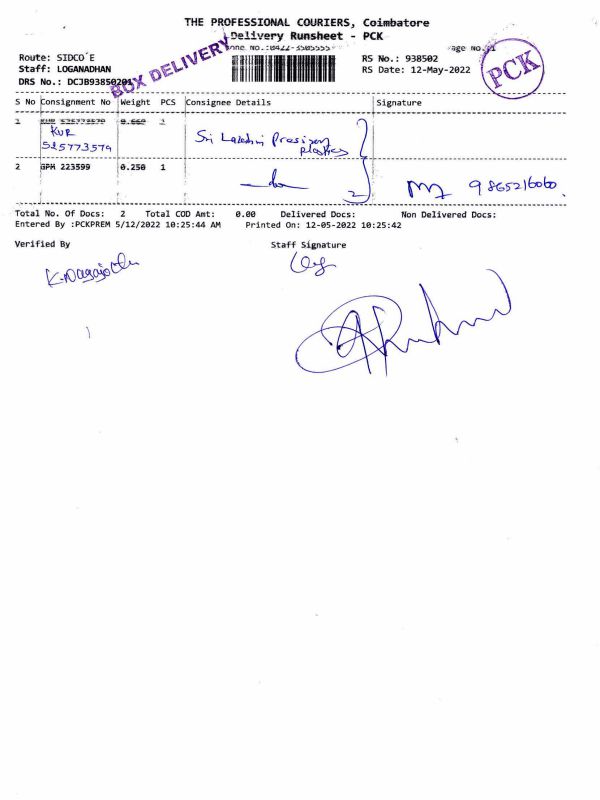 THE PROFESSIONAL COURIERS, Coimbatore
Delivery Runsheet - PCK
Phone No.:0422-3505555 Page No.:1
PCK
Route: SIDCO E RS No.: 938502
Staff: LOGANADHAN RS Date: 12-May-2022
DRS No.: DCJB93850201
BOX DELIVERY
S No Consignment No Weight PCS Consignee Details Signature
1 KUR 525773579 0.660 1
KUR
525773579
Sri Lakshmi Presizen
plastics
2 GPM 223599 0.250 1
do
2
9865216060.
Total No. Of Docs: 2 Total COD Amt: 0.00 Delivered Docs: Non Delivered Docs:
Entered By :PCKPREM 5/12/2022 10:25:44 AM Printed On: 12-05-2022 10:25:42
Verified By Staff Signature